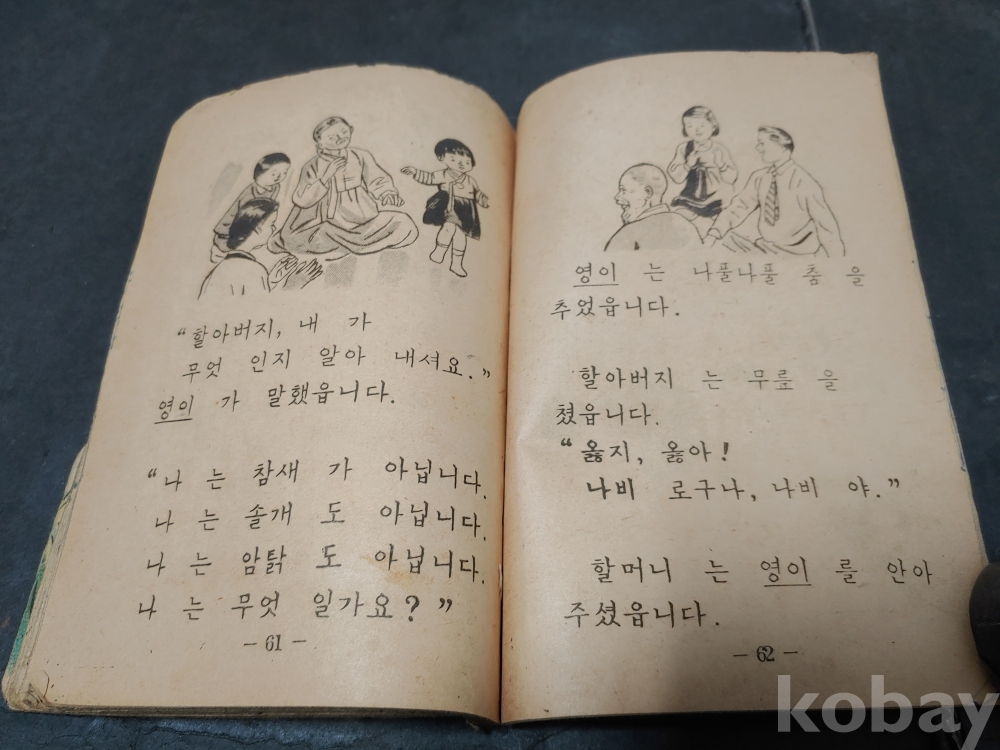 “할아버지, 내 가
무엇 인지 알아 내셔요.”
영이 가 말했읍니다.
“나 는 참새 가 아닙니다.
나 는 솔개 도 아닙니다.
나 는 암탉 도 아닙니다.
나 는 무엇 일가요?”
— 61 —
영이 는 나풀나풀 춤 을
추었읍니다.
할아버지 는 무릎 을
쳤읍니다.
“옳지, 옳아!
나비 로구나, 나비 야.”
할머니 는 영이 를 안아
주셨읍니다.
— 62 —
kobay